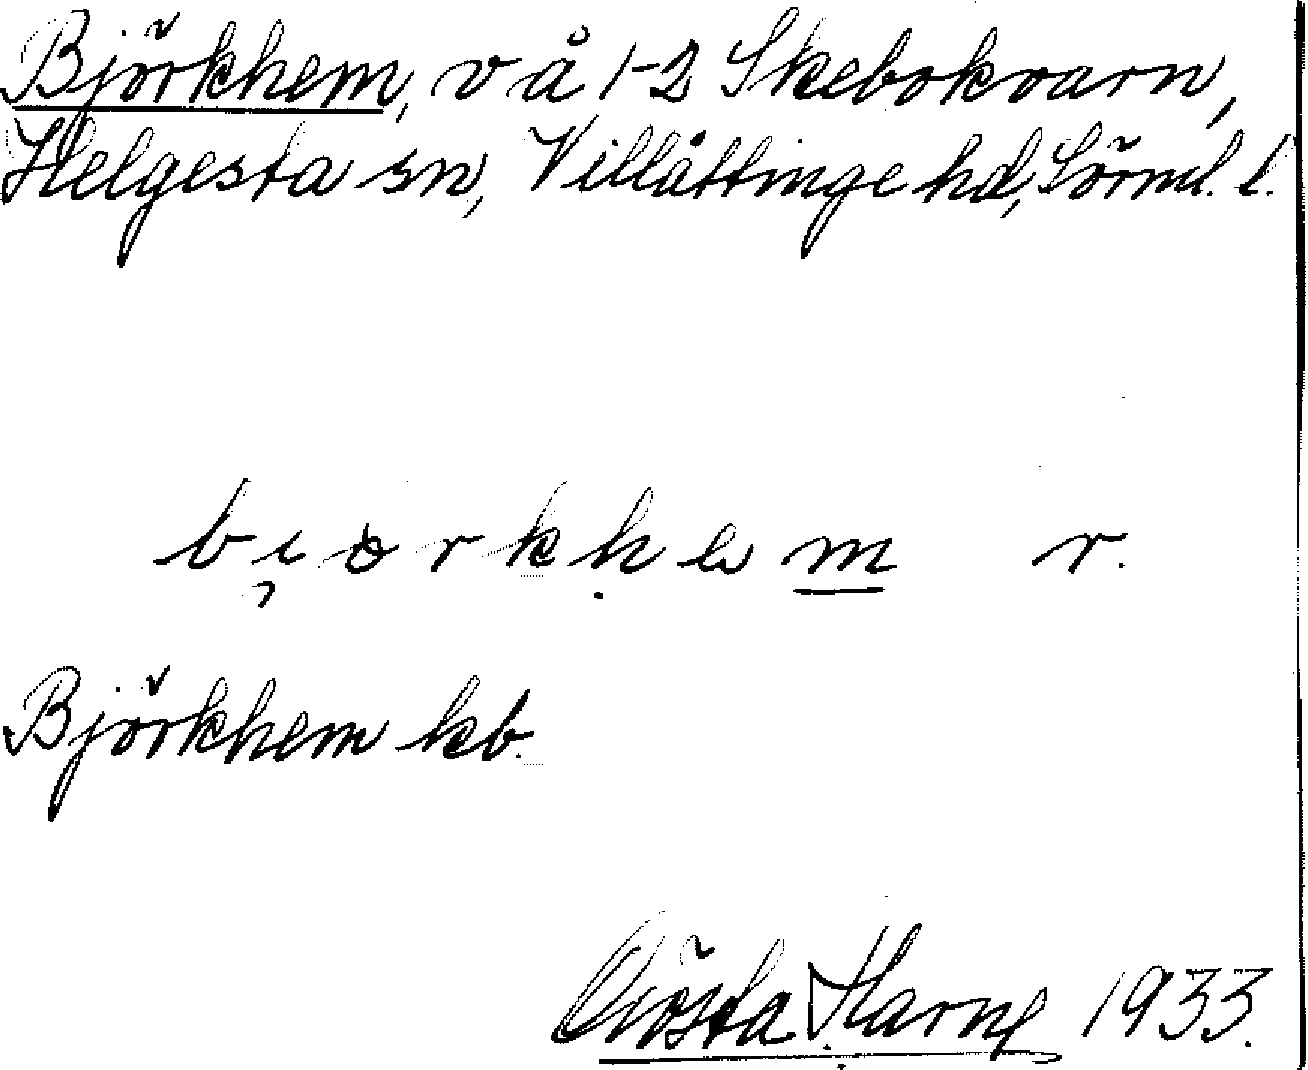 Björkhem, vå 1-2 Skebokvarn,
Helgesta sn, Villåttinge hd, Sörml. l.
bi̯ɵrkhem r.
Björkhem kb.
Gösta 1933.